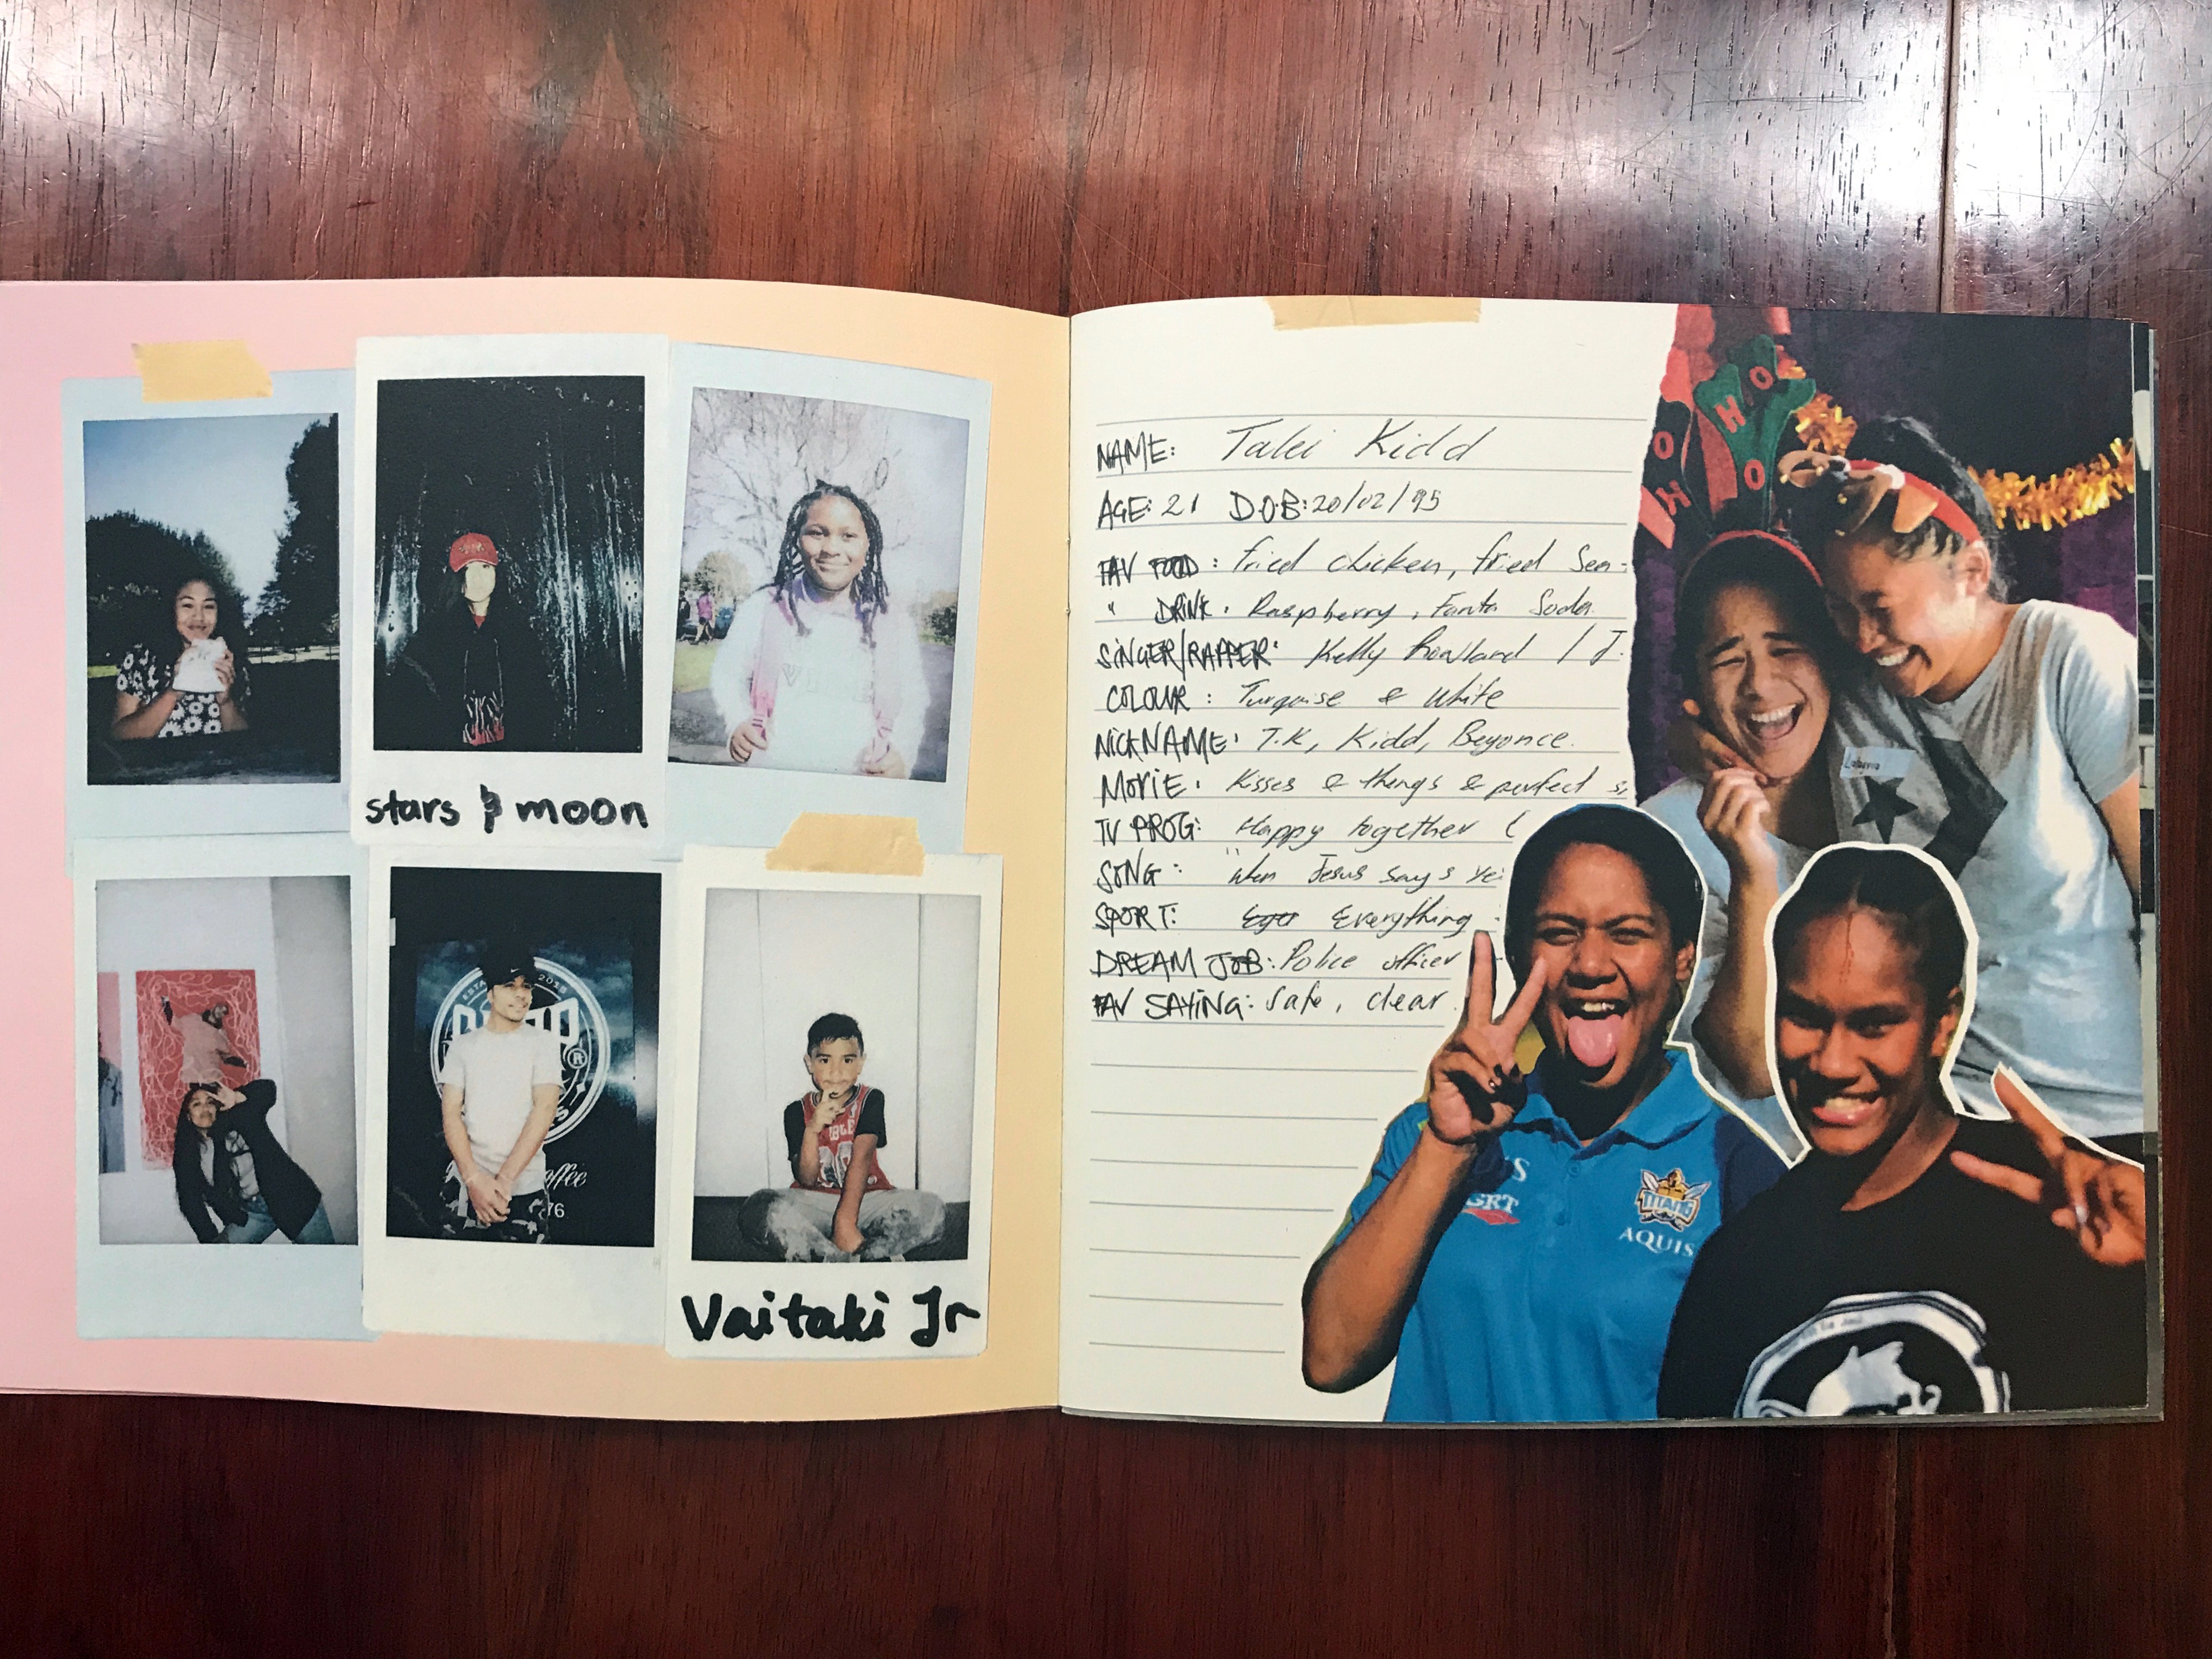 stars & moon
Vaitaki Jr
ESTA 2018
®
offee
76
NAME: Talei Kidd
AGE: 21 D.O.B: 20/02/95
FAV FOOD: fried chicken, fried Sea
" DRINK: Raspberry, Fanta Soda
SINGER/RAPPER: Kelly Rowland / J.
COLOUR: Turqoise & White
NICKNAME: T.K, Kidd, Beyonce.
MOVIE: Kisses & things & perfect
TV PROG: Happy together (
SONG: "When Jesus says ye
SPORT: Everything
DREAM JOB: Police officer
FAV SAYING: Safe, clear
HO
HO
TITANS
AQUIS